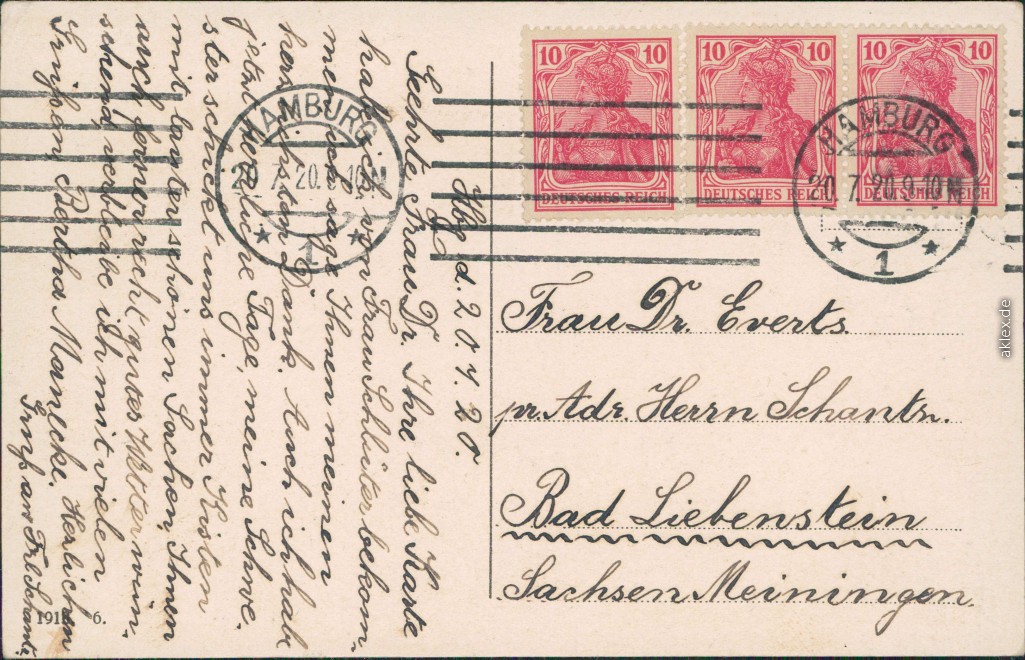 10 10 10 10 10 10
DEUTSCHES REICH DEUTSCHES REICH DEUTSCHES REICH
HAMBURG
20.7.20.9-10N
1
HAMBURG
20.7.20.9-10N
1
Hbg d. 20.7.20.
Geehrte Frau Dr. Ihre liebe Karte
habe ich von Frau Schlüter bekom-
men, ich sage Ihnen meinen
herzlichsten Dank. Auch ich habe
jetzt herrliche Tage, meine Schwe-
ster schicket uns immer Kisten
mit lauter schönen Sachen, Ihnen
auch ferner recht gutes Wetter wün-
schend, verbleibe ich mit vielen
Grüßen Bertha Manecke. Herlichen
Gruß an Frl Schant.
Frau Dr. Everts
pr. Adr. Herrn Schantn.
Bad Liebenstein
Sachsen Meiningen.
6.
aklex.de